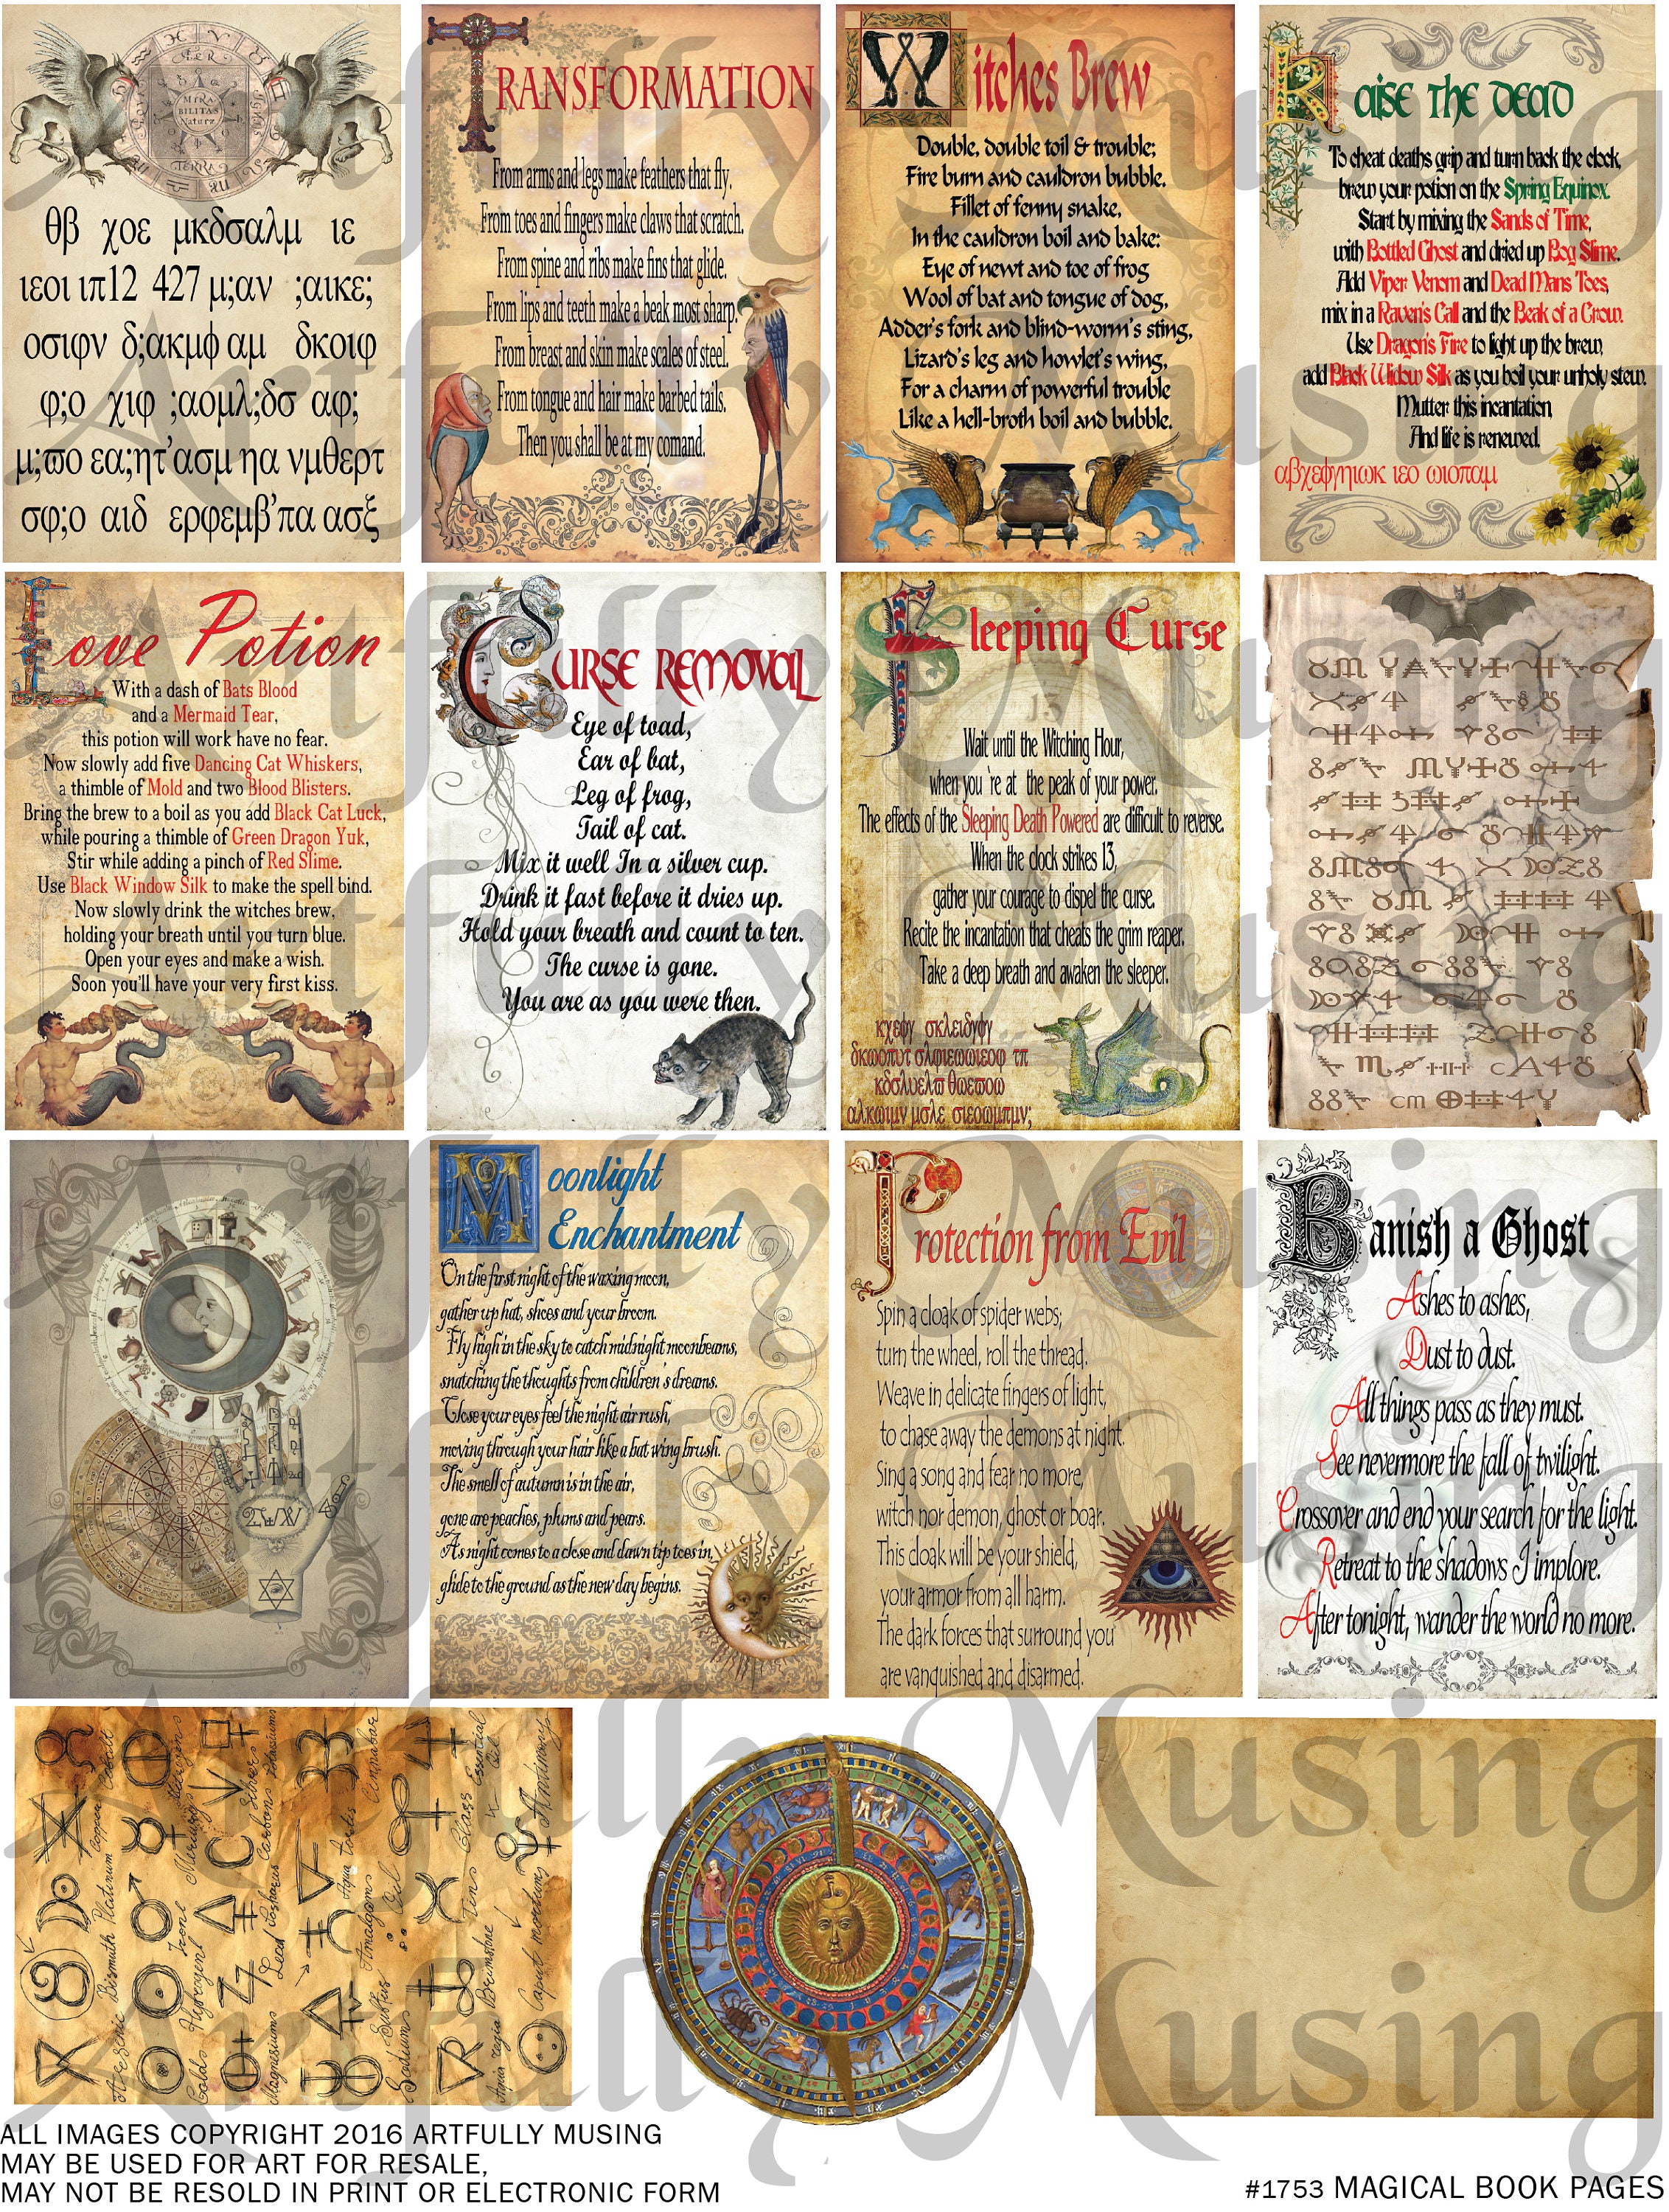 θβ χοε μκδσαλμ ιε
ιεοι ιπ12 427 μ;αν ;αικε;
οσιφν δ;ακμφ αμ δκοιφ
φ;ο χιφ ;αομλ;δσ αφ;
μ;ϖο εα;ητ'ασμ ηα νμθερτ
σφ;ο αιδ ερφεμβ'πα ασξ
TRANSFORMATION
From arms and legs make feathers that fly.
From toes and fingers make claws that scratch.
From spine and ribs make fins that glide.
From lips and teeth make a beak most sharp.
From breast and skin make scales of steel.
From tongue and hair make barbed tails.
Then you shall be at my comand.
Witches Brew
Double, double toil & trouble;
Fire burn and cauldron bubble.
Fillet of fenny snake,
In the cauldron boil and bake:
Eye of newt and toe of frog
Wool of bat and tongue of dog,
Adder's fork and blind-worm's sting,
Lizard's leg and howlet's wing,
For a charm of powerful trouble
Like a hell-broth boil and bubble.
Raise the Dead
To cheat deaths grip and turn back the clock,
brew your potion on the Spring Equinox.
Start by mixing the Sands of Time,
with Bottled Ghost and dried up Bog Slime.
Add Viper Venom and Dead Mans Toes,
mix in a Raven's Call and the Beak of a Crow.
Use Dragon's Fire to light up the brew,
add Black Widow Silk as you boil your unholy stew.
Mutter this incantation,
And life is renewed.
Love Potion
With a dash of Bats Blood
and a Mermaid Tear,
this potion will work have no fear.
Now slowly add five Dancing Cat Whiskers,
a thimble of Mold and two Blood Blisters.
Bring the brew to a boil as you add Black Cat Luck,
while pouring a thimble of Green Dragon Yuk,
Stir while adding a pinch of Red Slime.
Use Black Window Silk to make the spell bind.
Now slowly drink the witches brew,
holding your breath until you turn blue.
Open your eyes and make a wish.
Soon you'll have your very first kiss.
Curse Removal
Eye of toad,
Ear of bat,
Leg of frog,
Tail of cat.
Mix it well In a silver cup.
Drink it fast before it dries up.
Hold your breath and count to ten.
The curse is gone.
You are as you were then.
Sleeping Curse
Wait until the Witching Hour,
when you 're at the peak of your power.
The effects of the Sleeping Death Powered are difficult to reverse.
When the clock strikes 13,
gather your courage to dispel the curse.
Recite the incantation that cheats the grim reaper.
Take a deep breath and awaken the sleeper.
Moonlight
Enchantment
On the first night of the waxing moon,
gather up hat, shoes and your broom.
Fly high in the sky to catch midnight moonbeams,
snatching the thoughts from children's dreams.
Close your eyes feel the night air rush,
moving through your hair like a bat wing brush.
The smell of autumn is in the air,
gone are peaches, plums and pears.
As night comes to a close and dawn tip toes in,
glide to the ground as the new day begins.
Protection from Evil
Spin a cloak of spider webs;
turn the wheel, roll the thread.
Weave in delicate fingers of light,
to chase away the demons at night.
Sing a song and fear no more,
witch nor demon, ghost or boar.
This cloak will be your shield,
your armor from all harm.
The dark forces that surround you
are vanquished and disarmed.
Banish a Ghost
Ashes to ashes,
Dust to dust.
All things pass as they must.
See nevermore the fall of twilight.
Crossover and end your search for the light.
Retreat to the shadows I implore.
After tonight, wander the world no more.
ALL IMAGES COPYRIGHT 2016 ARTFULLY MUSING
MAY BE USED FOR ART FOR RESALE,
MAY NOT BE RESOLD IN PRINT OR ELECTRONIC FORM
#1753 MAGICAL BOOK PAGES
Artfully Musing